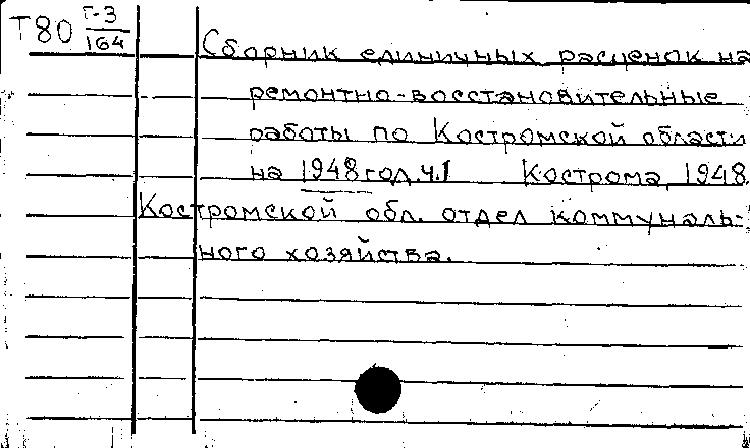 Т80 Г-3
164
Сборник единичных расценок на
ремонтно-восстановительные
работы по Костромской области
на 1948 год. ч.1 Кострома, 1948.
Костромской обл. отдел коммуналь-
ного хозяйства.